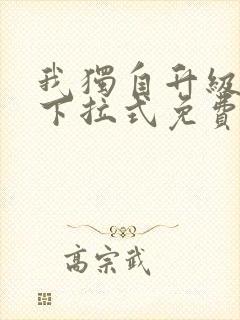 我獨自升級
下拉式免費
高宗武